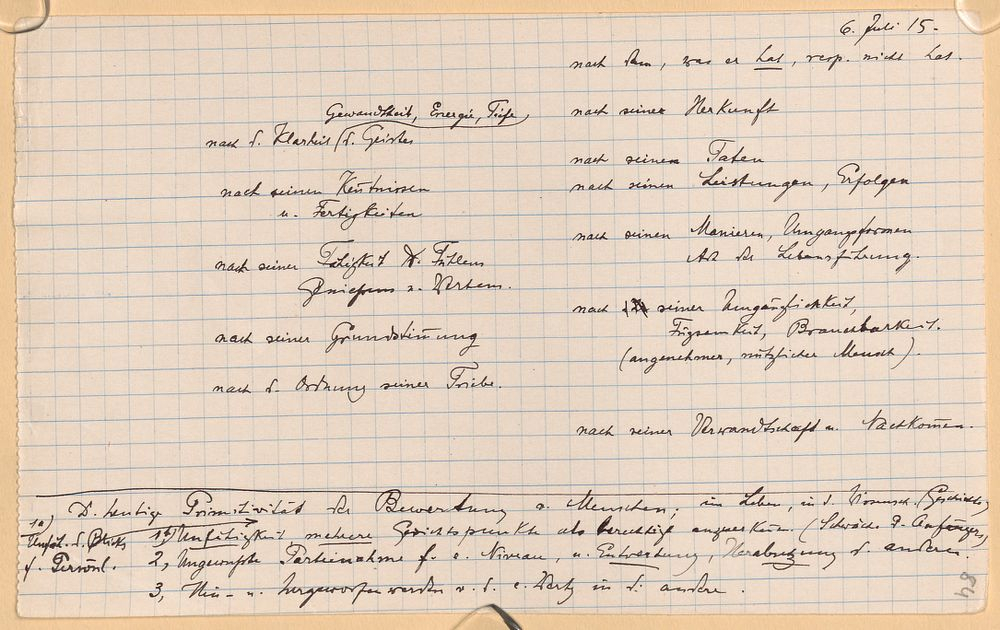 6. Juli 15.
nach dem, was er hat, resp. nicht hat.
nach seiner Herkunft
nach seinen Taten
nach seinen Leistungen, Erfolgen
nach seinen Manieren, Umgangsformen
Art der Lebensführung.
nach seiner Umgänglichkeit,
Fügsamkeit, Brauchbarkeit.
(angenehmer, nützlicher Mensch).
nach seiner Verwandtschaft u. Nachkom̄en.
Gewandtheit, Energie, Tiefe
nach d. Klarheit d. Geistes
nach seinen Ken̄tnissen
u. Fertigkeiten
nach seiner Fähigkeit d. Fühlens
Geniessens u. Wertens.
nach seiner Grundstim̄ung
nach d. Ordnung seiner Triebe.
D. heutige Primitivität der Bewertung v. Menschen; im Leben, in d. Wissensch. (Geschichte)
1a) Unfäh. d. Blicks f. Persönl.
1b) Unfähigkeit mehrere Gesichtspunkte als berechtigt anzuerkennen. (Schwäche d. Anfängers)
2, Ungewusste Parteinahme f. e. Niveau, u. Entwertung, Herabsetzung d. anderen.
3, Hin- u. Hergeworfen werden v. d. e. Wertg in d. andere.
84